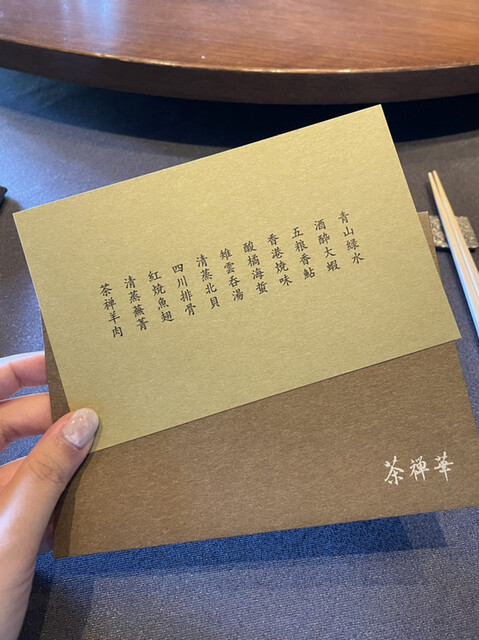 青山緑水
酒醉大蝦
五粮香鮎
香港焼味
酸橘海蜇
雉雲呑湯
清蒸北貝
四川排骨
紅焼魚翅
清蒸蕪菁
茶禅羊肉
茶禅華